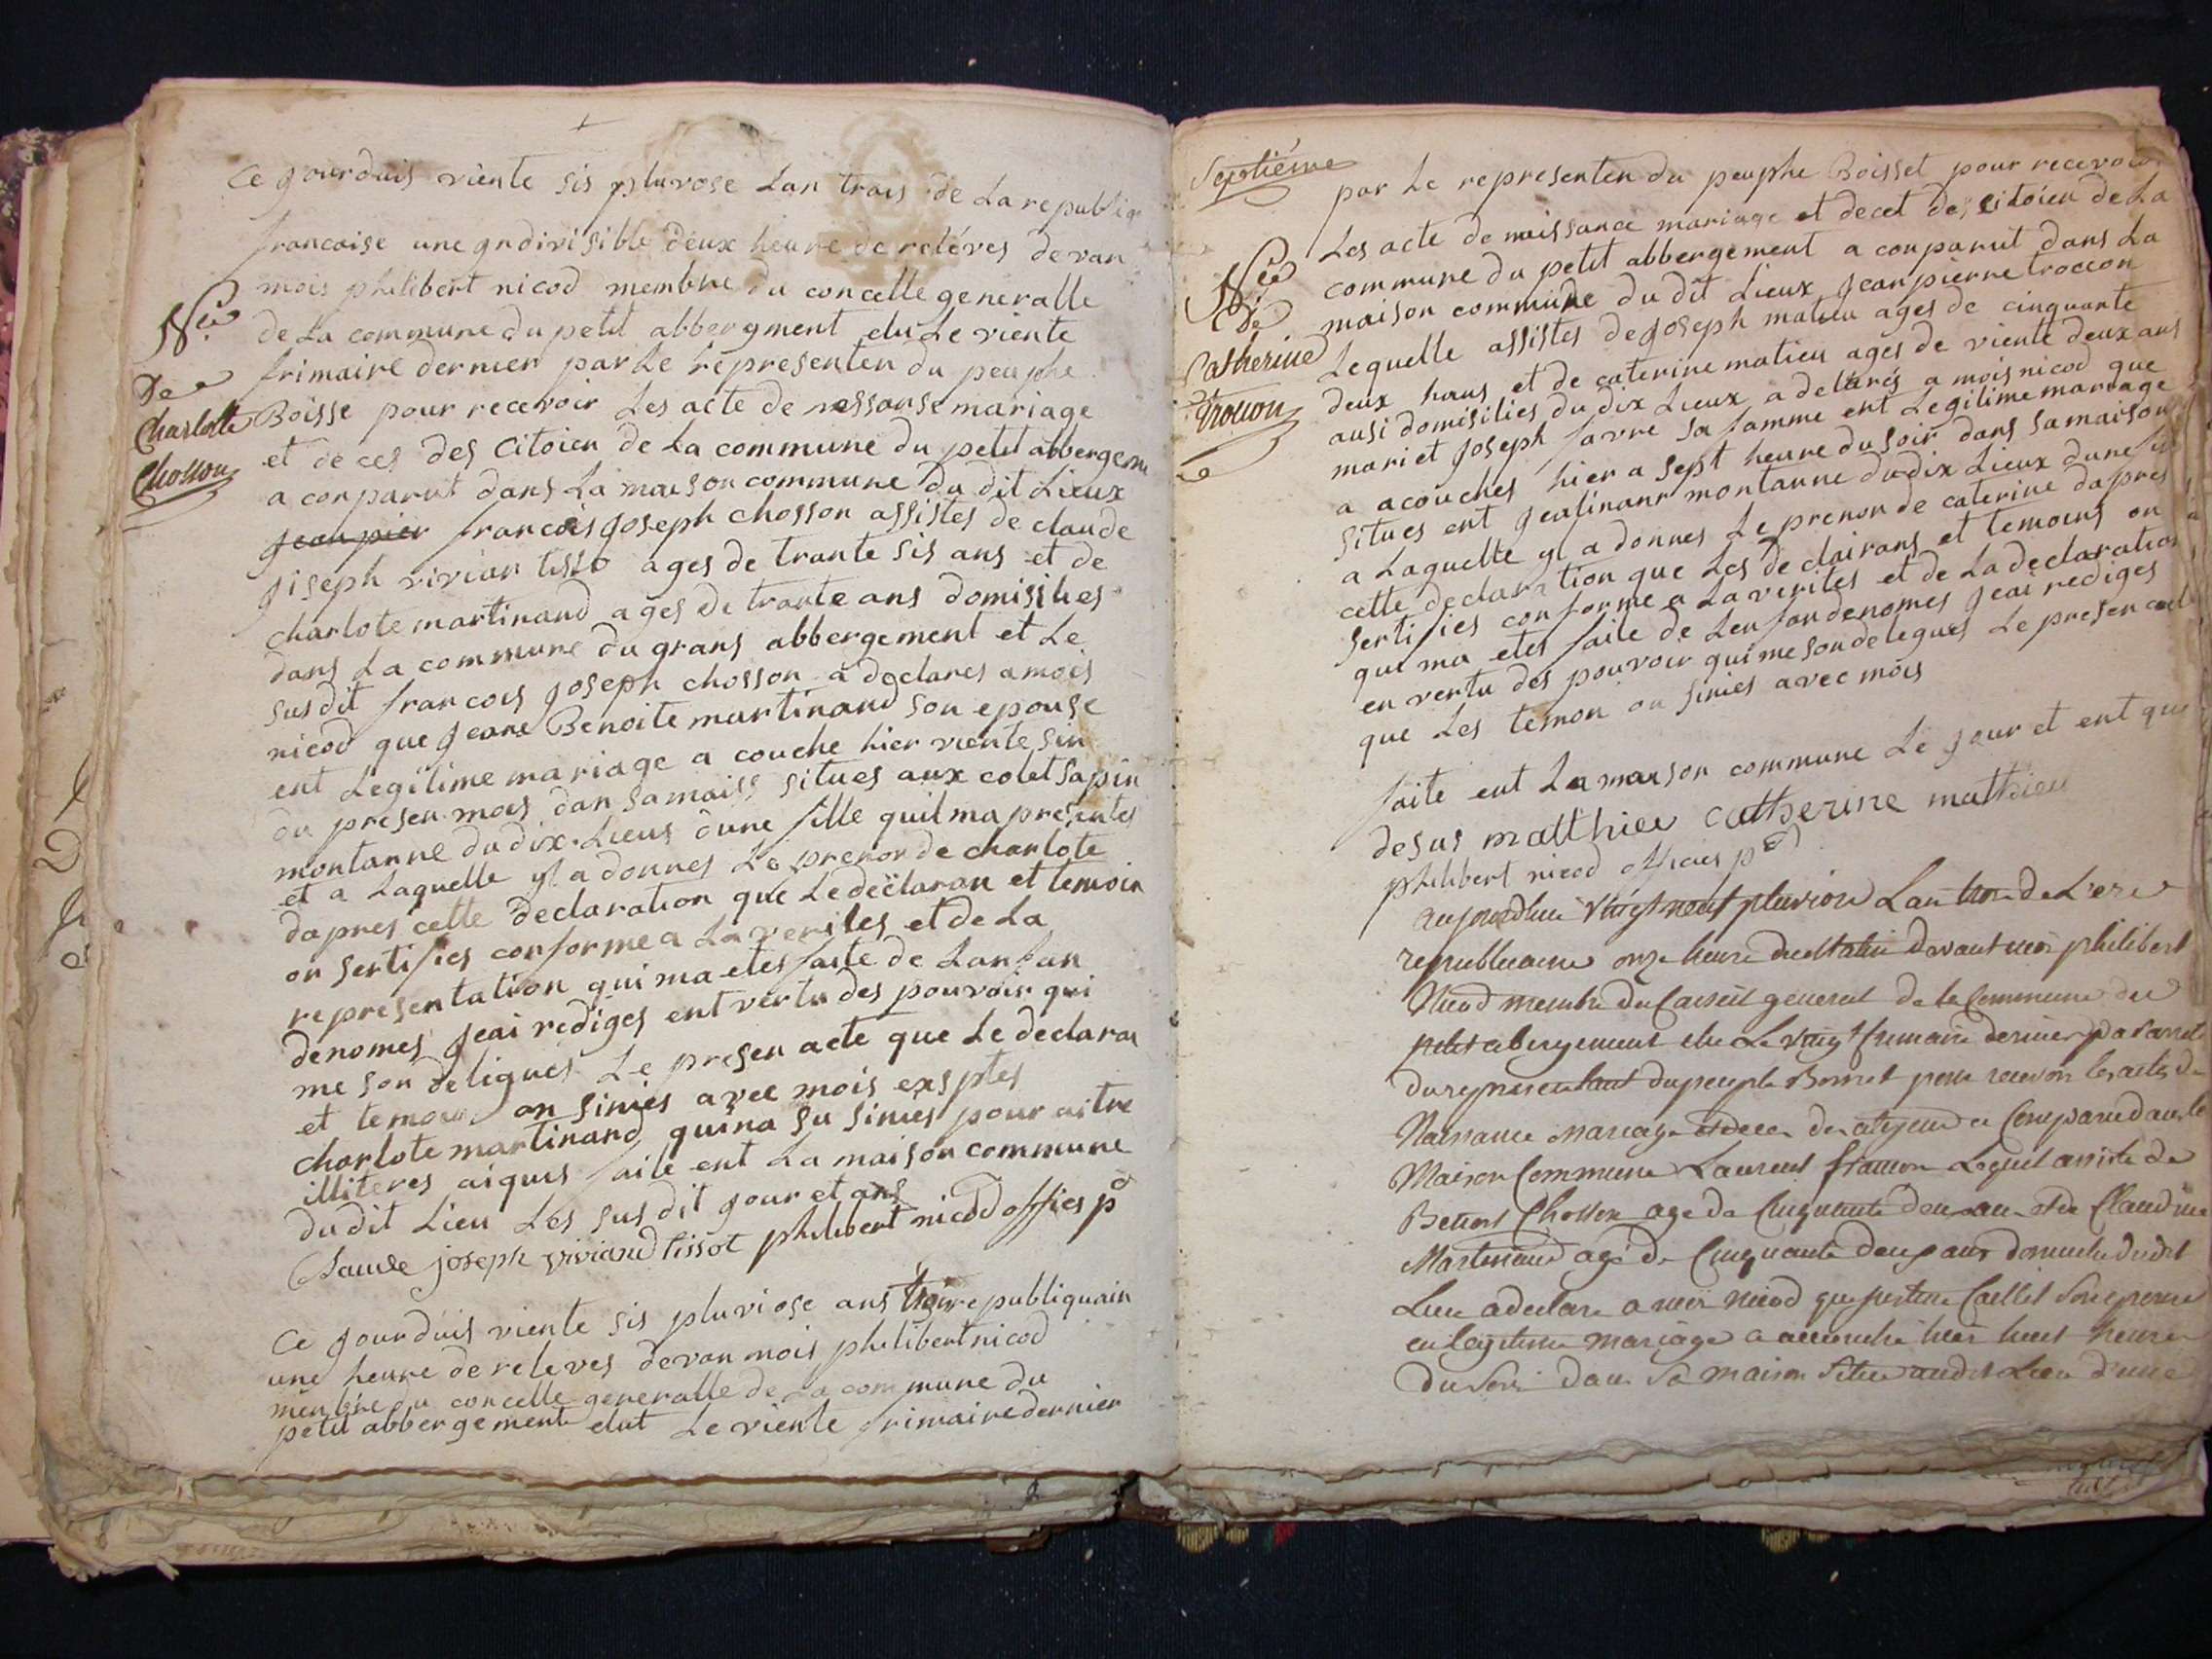 Ce gourduis viente sis pluvose Lan trais de La republiq
francaise une gndivisible deux heure de reléves devan
mois philibert nicod membre du concelle generalle
de La commune du petit abbergment elu Le viente
frimaire dernier par Le representen du peuphe
Boisse pour recevoir Les acte de nessanse mariage
et de ces des Citoien de La commune du petit abbergeme
a conparut dans La maison commune du dit Lieux
Jeanpier francois Joseph chosson assistes de claude
Jiseph vivian tisso ages de trante sis ans et de
charlote martinand ages de trante ans domisilies
dans La commune du grans abbergement et Le
susdit francois Joseph chosson a declares a mois
nicod que Jeane Benoite martinand son epouse
ent Legitime mariage a couche hier viente sin
du presen mois dan sa maiss situes aux colet sapin
montanne dudix Lieus dune fille quil ma presentes
et a Laquelle yl a donnes Le prenon de charlote
dapres cette declaration que Le declaran et temoin
on sertifies conforme a La verites et de La
representation qui ma etes faite de Lanfan
denomes Jeai rediges ent vertu des pouvoir qui
me son deligues Le presen acte que Le declaran
et temoin on sinies avec mois exsptes
charlote martinand quina su sinies pour aitre
illiteres aiques faite ent La maison commune
du dit Lieu Les susdit jour et ans
Claude joseph viviand tissot philibert nicod offies p
Ce gourduis viente sis pluviose ans trois republiquain
une heure de releves devan mois philibert nicod
menbre du concelle generalle de La commune du
petit abbergement elut Le viente frimaire dernier
Née
De
Charlotte
Chosson
Septiéme
par Le representen du peuphe Boisset pour recevoir
Les acte de naissance mariage et decet des citoien de La
commune du petit abbergement a conparut dans La
maison commune du dit Lieux Jeanpierre trocon
Lequelle assistes de Joseph matieu ages de cinquante
deux hans et de caterine matieu ages de viente deux ans
ausi domisilies du dix Lieux a delares a mois nicod que
mariet Joseph favre sa famme ent Legitime mariage
a acouches hier a sept heure du soir dans sa maison
situes ent Jealinant montanne dudix Lieux dune
a Laquelle yl a donnes Le prenon de caterine dapres
cette declaration que Les declairans et temoins on
sertifies conforme a La verites et de La declaration
qui ma etes faite de Lenfan denomes Jeai rediges
en vertu des pouvoir qui me son delegues Le presen acte
que Les temon on sinies avec mois
faite ent La maison commune Le Jour et ent que
desus matthieu catherine matthieu
philibert nicod offies p
Née
De
Catherine
Trocon
aujourdhui vingt neuf pluviose Lan trois de L'ere
republicaine onze heure du Matin devant moi philibert
Nicod membre du Conseil general de la Commune du
petit abergement elue Le vingt frimaire dernier par arreté
du representant du peuple Boisset pour recevoir les actes de
Naissance mariage et deces des citoyens a Comparu dans la
Maison Commune Laurent Lequel assisté de
Benoit Chosson age de Cinquante deux ans et de Claudine
Martinand agé de Cinquante deux ans domicilie dudit
Lieu a declare a moi nicod que justine Caillet Son epouse
en Legitime mariage a accouché hier huit heure
du Soir dans Sa maison Situé audit Lieu d'une